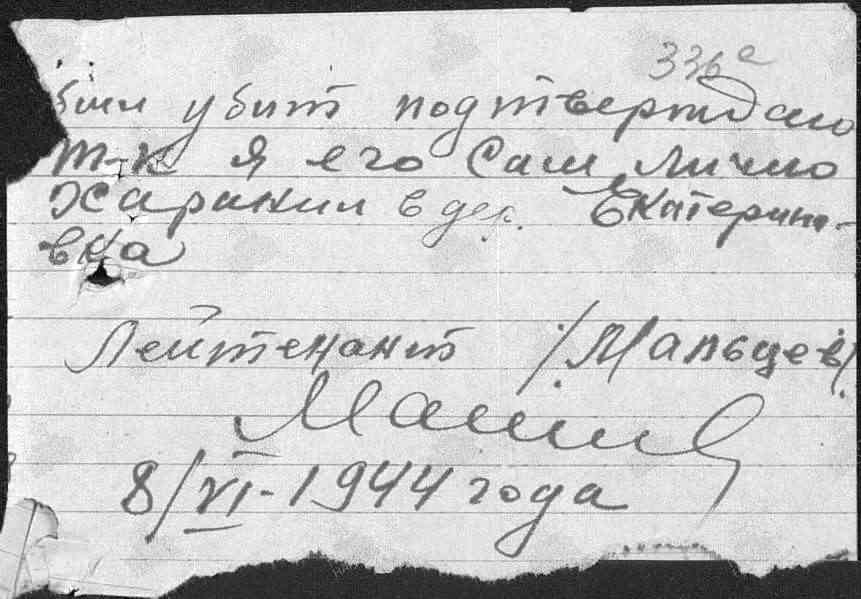 336а
был убит подтверждаю
т-к я его сам лично
харанил в дер. Екатерин-
вка
Лейтенант /Мальцев/
8/VI-1944 года